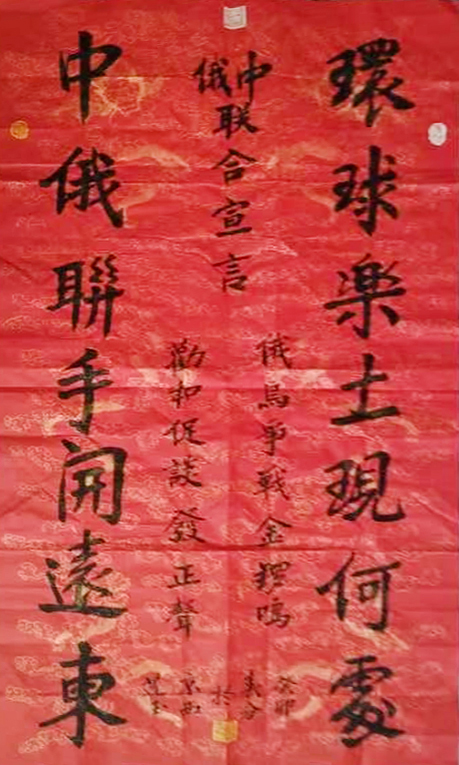 環球楽土現何處
中俄联合宣言
俄烏爭戰金鑼鳴
勸和促談發正聲
中俄聯手開遠東
癸卯
於
京西